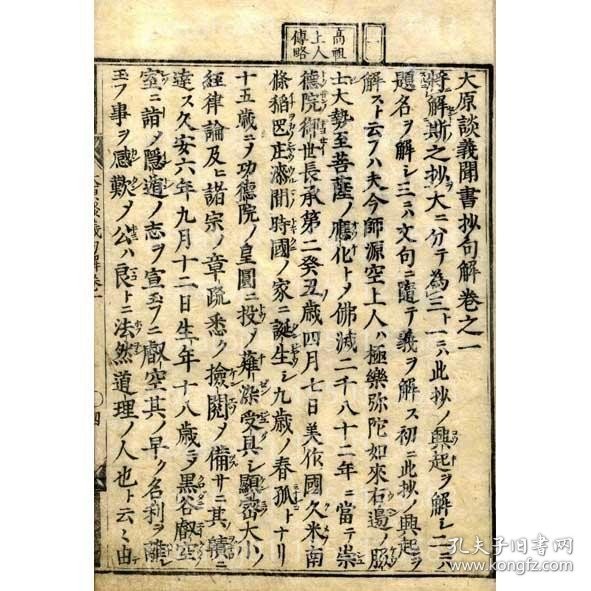 高祖
上人
傳略
大原談義聞書抄句解卷之一
將解斯之抄大ニ分テ為三ト一ニハ此抄ノ興起ヲ解シ二ニハ
題名ヲ解シ三ニハ文句ニ隨テ義ヲ解ス初ニ此抄ノ興起ヲ
解スト云フハ夫今師源空上人ハ極樂弥陀如來右邊ノ脇
士大勢至菩薩ノ應化トメ佛滅二千八十二年ニ當テ崇
德院御世長承第二癸丑歳四月七日美作國久米南
條稲岡庄漆間時國ノ家ニ誕生シ九歳ノ春孤トナリ
十五歳ニヲ功德院ノ皇圓ニ投ノ薙染受具シ顯密大小
經律論及ヒ諸宗ノ章疏悉ク撿閲ノ備サニ其ノ賾ニ
達ス久安六年九月十二日生年十八歳ニヲ黒谷叡空ノ
室ニ詣ノ隱遁ノ志ヲ宣玉フニ叡空其ノ早ク名利ヲ離レ
玉フ事ヲ感歎ノ公ハ良トニ法然道理ノ人也ト云云由テ
孔夫子旧书网
www.kongfz.com